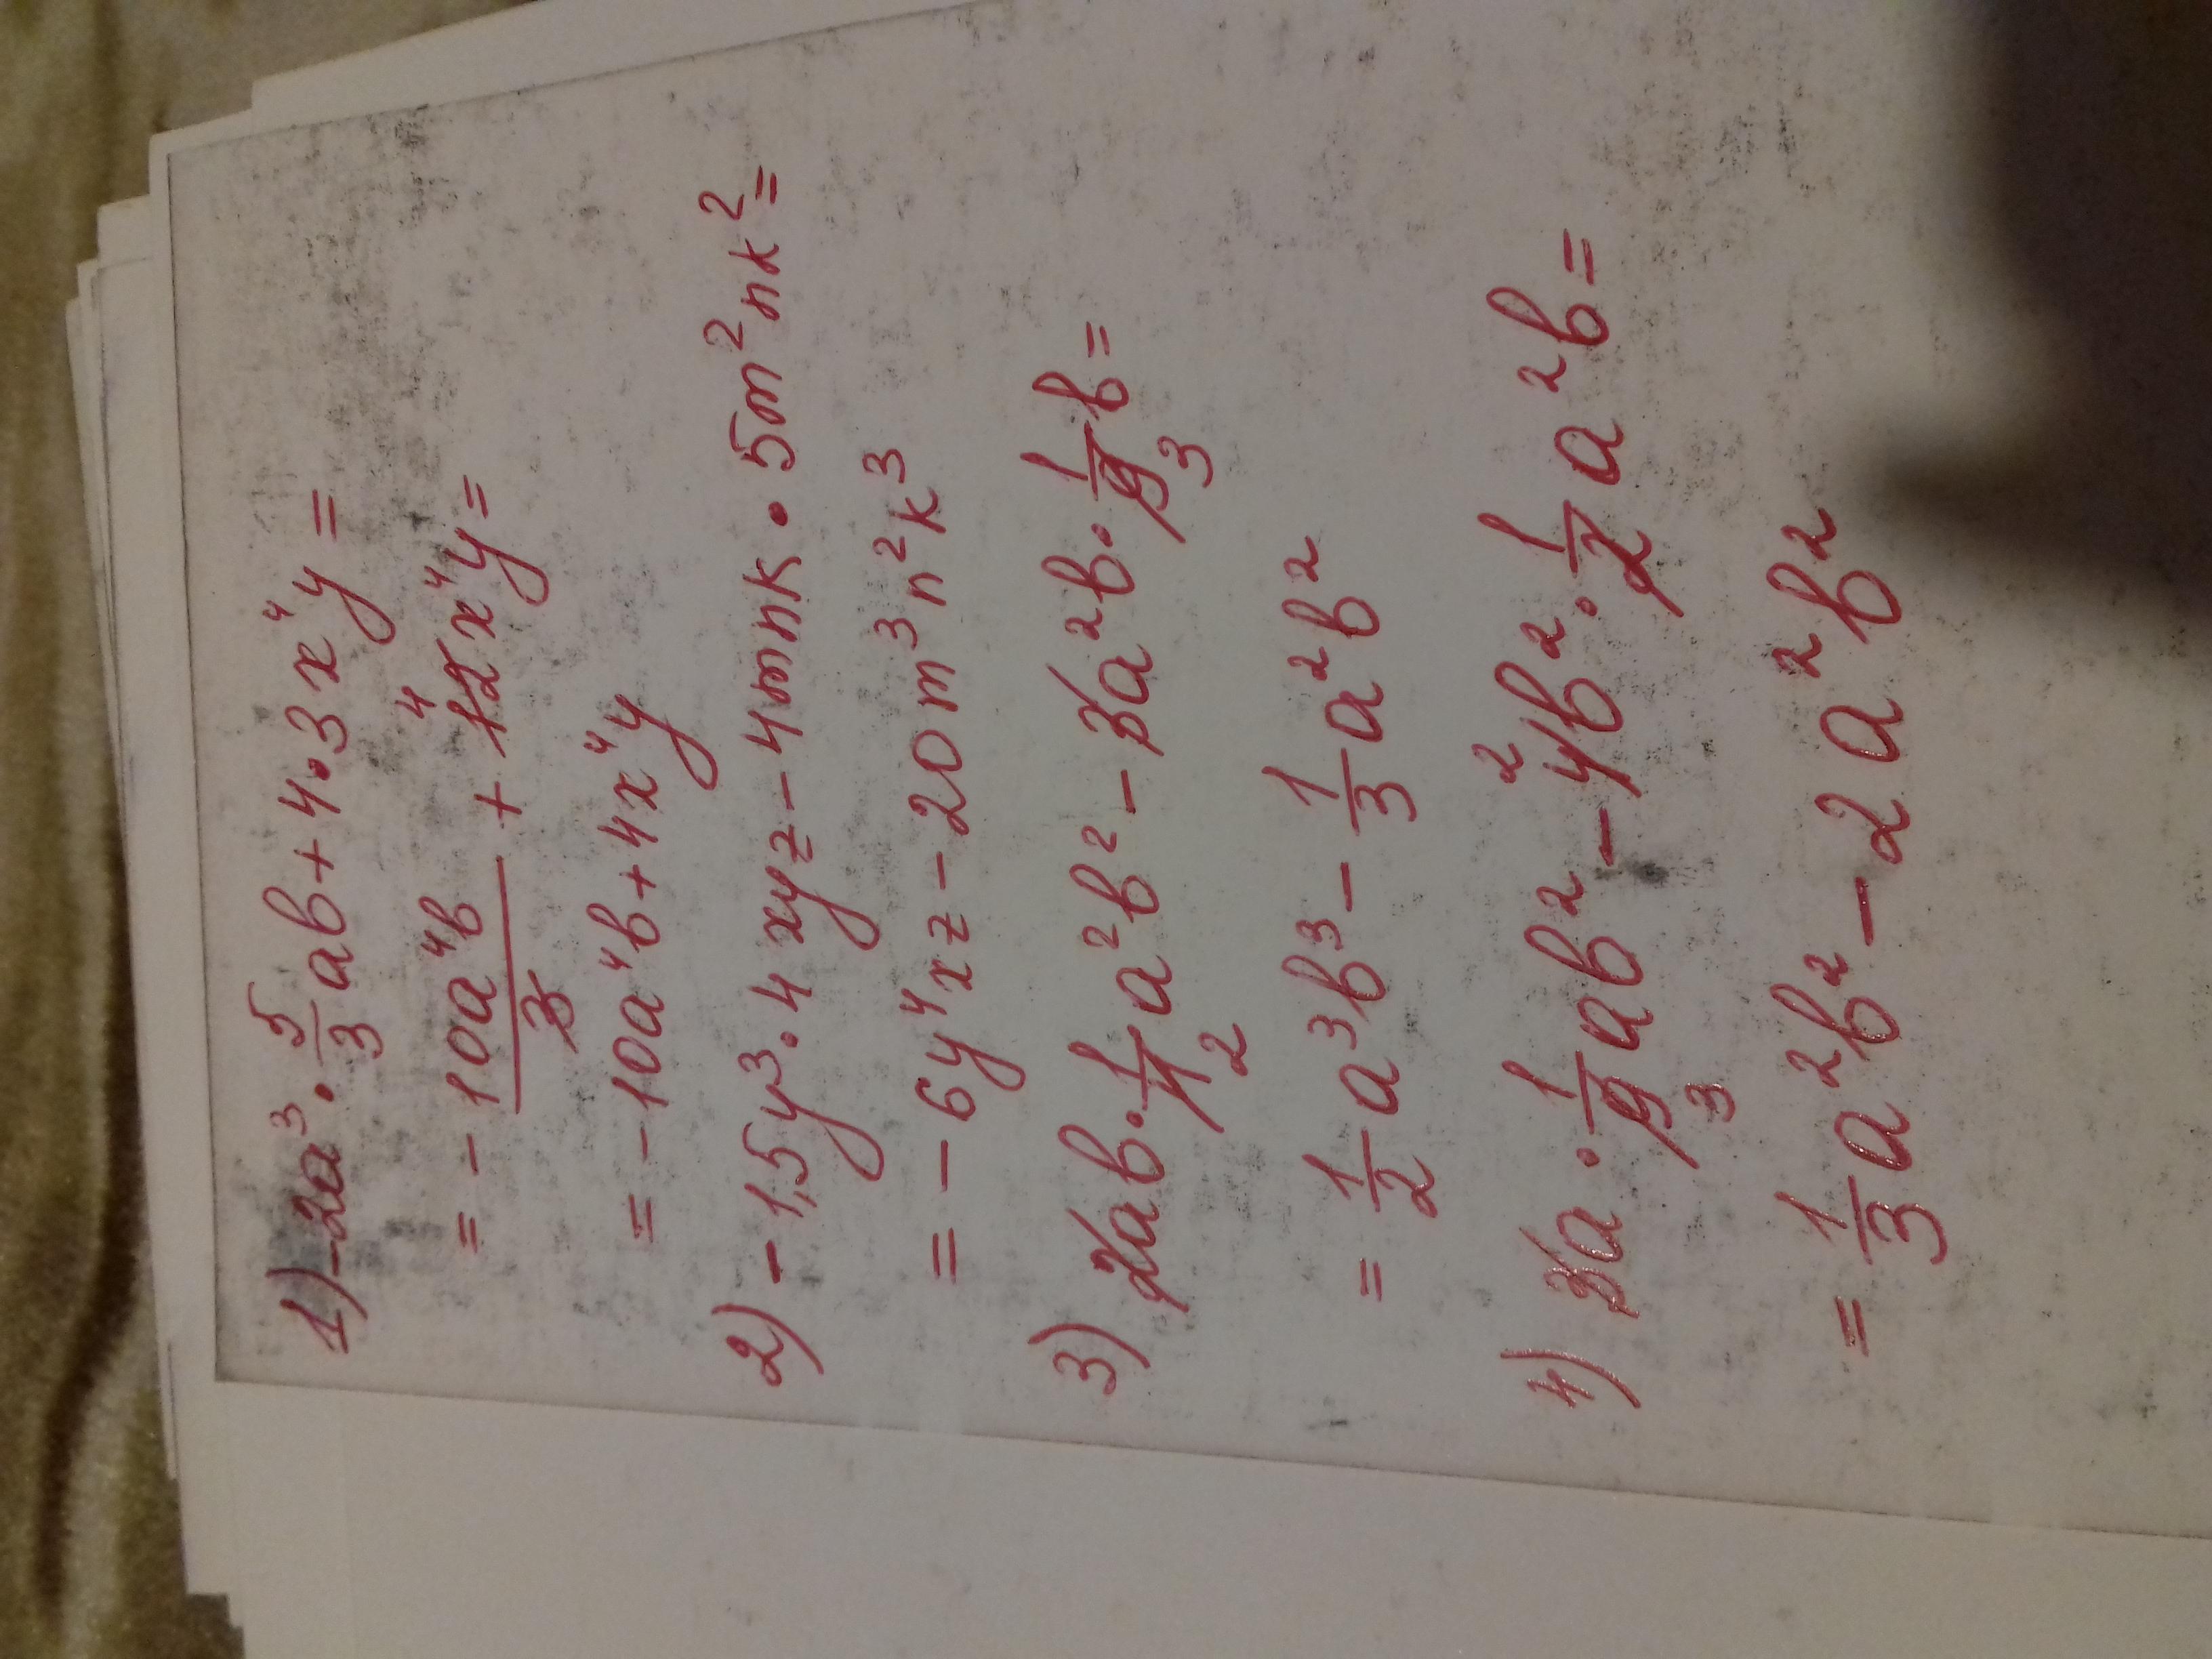 1) -2a³ · 5/3 ab + 4 · 3x⁴y =
= - 10a⁴b/3 + 12⁴x⁴y =
= -10a⁴b + 4x⁴y
2) -1,5y³ · 4xyz - 4mnk · 5m²nk² =
= -6y⁴xz - 20m³n²k³
3) 2ab · 1/4₂ a²b² - 3a²b · 1/9₃ b =
= 1/2 a³b³ - 1/3 a²b²
4) 3a · 1/9₃ ab² - 4²b² · 1/2 a²b =
= 1/3 a²b² - 2a²b²